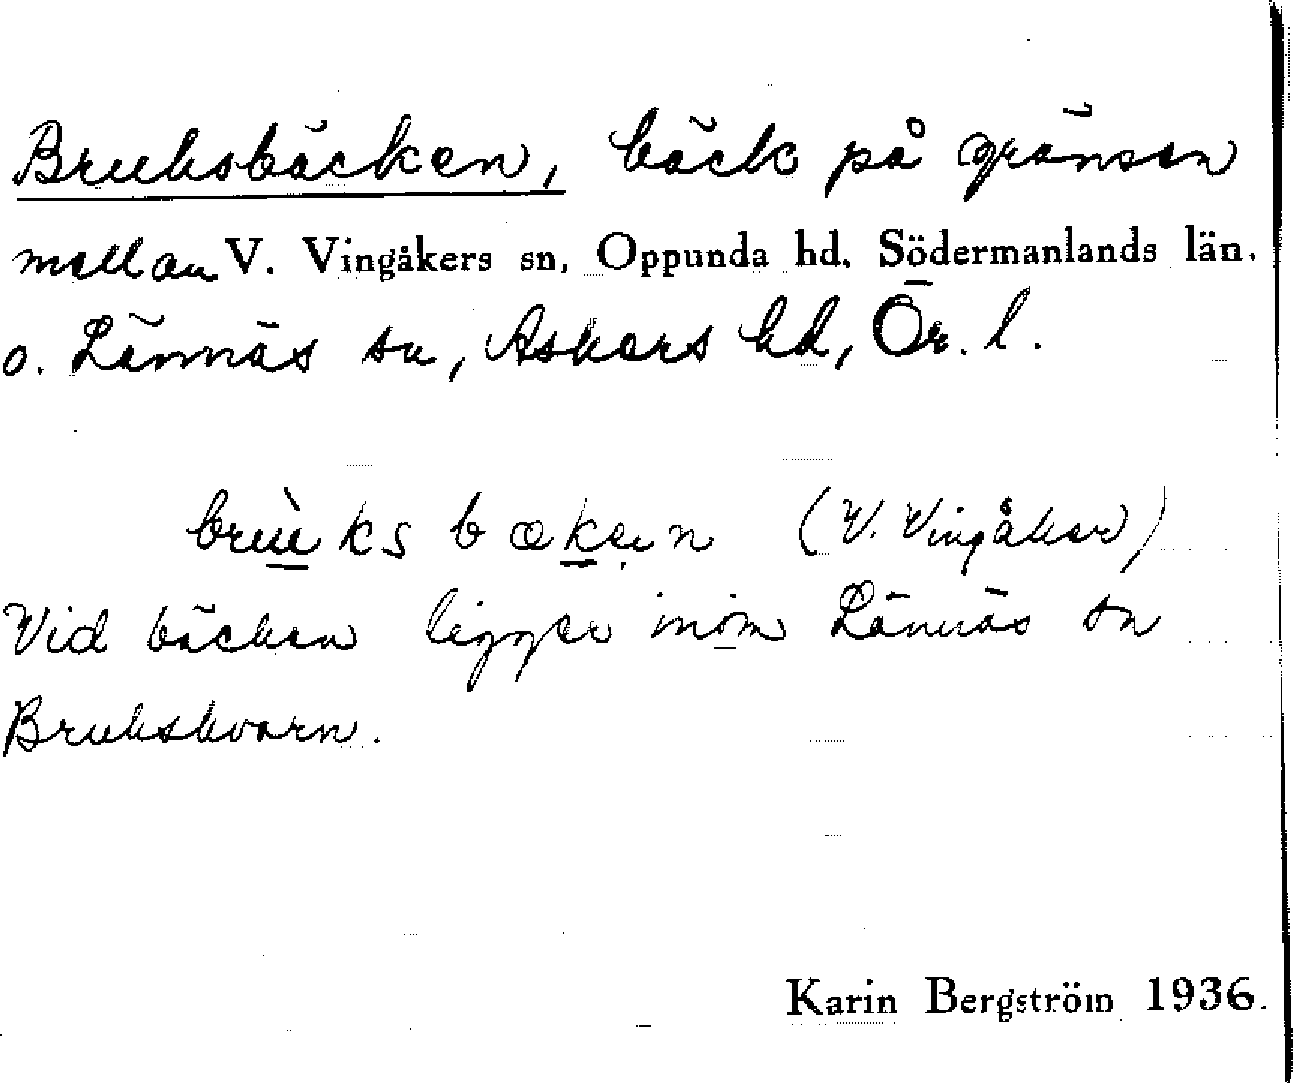 Bruksbäcken, bäck på gränsen
mellan V. Vingåkers sn, Oppunda hd. Södermanlands län.
o. Lännäs sn, Askers hd, Ör. l.
(V. Vingåker)
Vid bäcken ligger inom Lännäs sn
Brukskvarn.
Karin Bergström 1936.